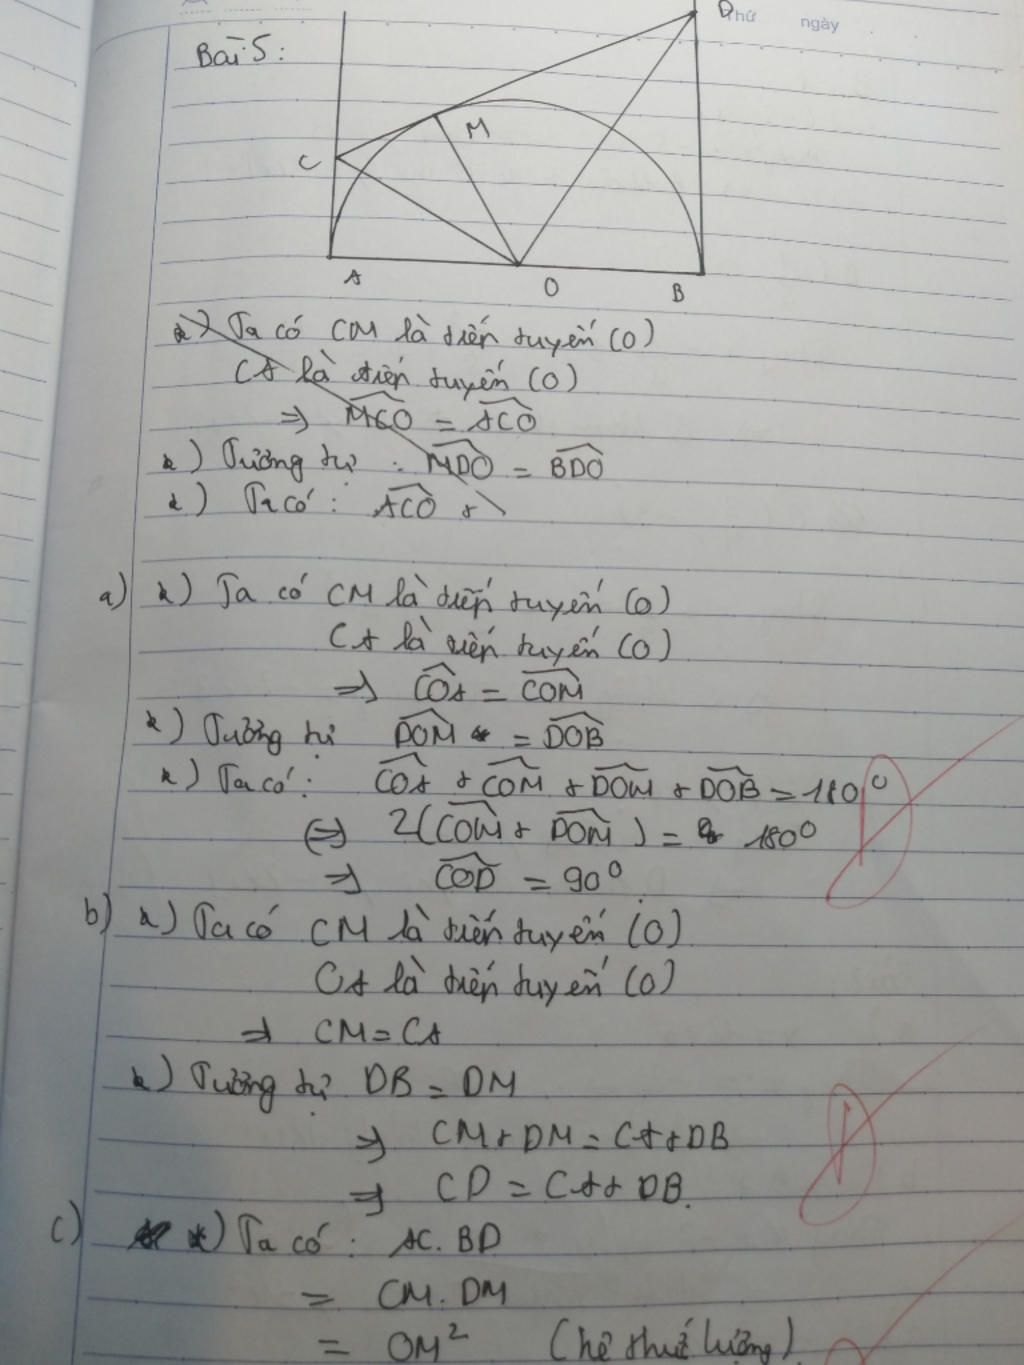 Thứ ngày
Bài 5:
D
M
C
A
O
B
*) Ta có CM là tiếp tuyến (O)
CA là tiếp tuyến (O)
=> MCO = ACO
*) Tương tự : MDO = BDO
*) Ta có : ACO +
a) *) Ta có CM là tiếp tuyến (O)
CA là tiếp tuyến (O)
=> COA = COM
*) Tương tự DOM = DOB
*) Ta có : COA + COM + DOM + DOB = 180°
<=> 2(COM + DOM) = 180°
=> COD = 90°
b) *) Ta có CM là tiếp tuyến (O)
CA là tiếp tuyến (O)
=> CM = CA
*) Tương tự DB = DM
=> CM + DM = CA + DB
=> CD = CA + DB.
c) *) Ta có : AC. BD
= CM. DM
= OM² (hệ thức lượng)